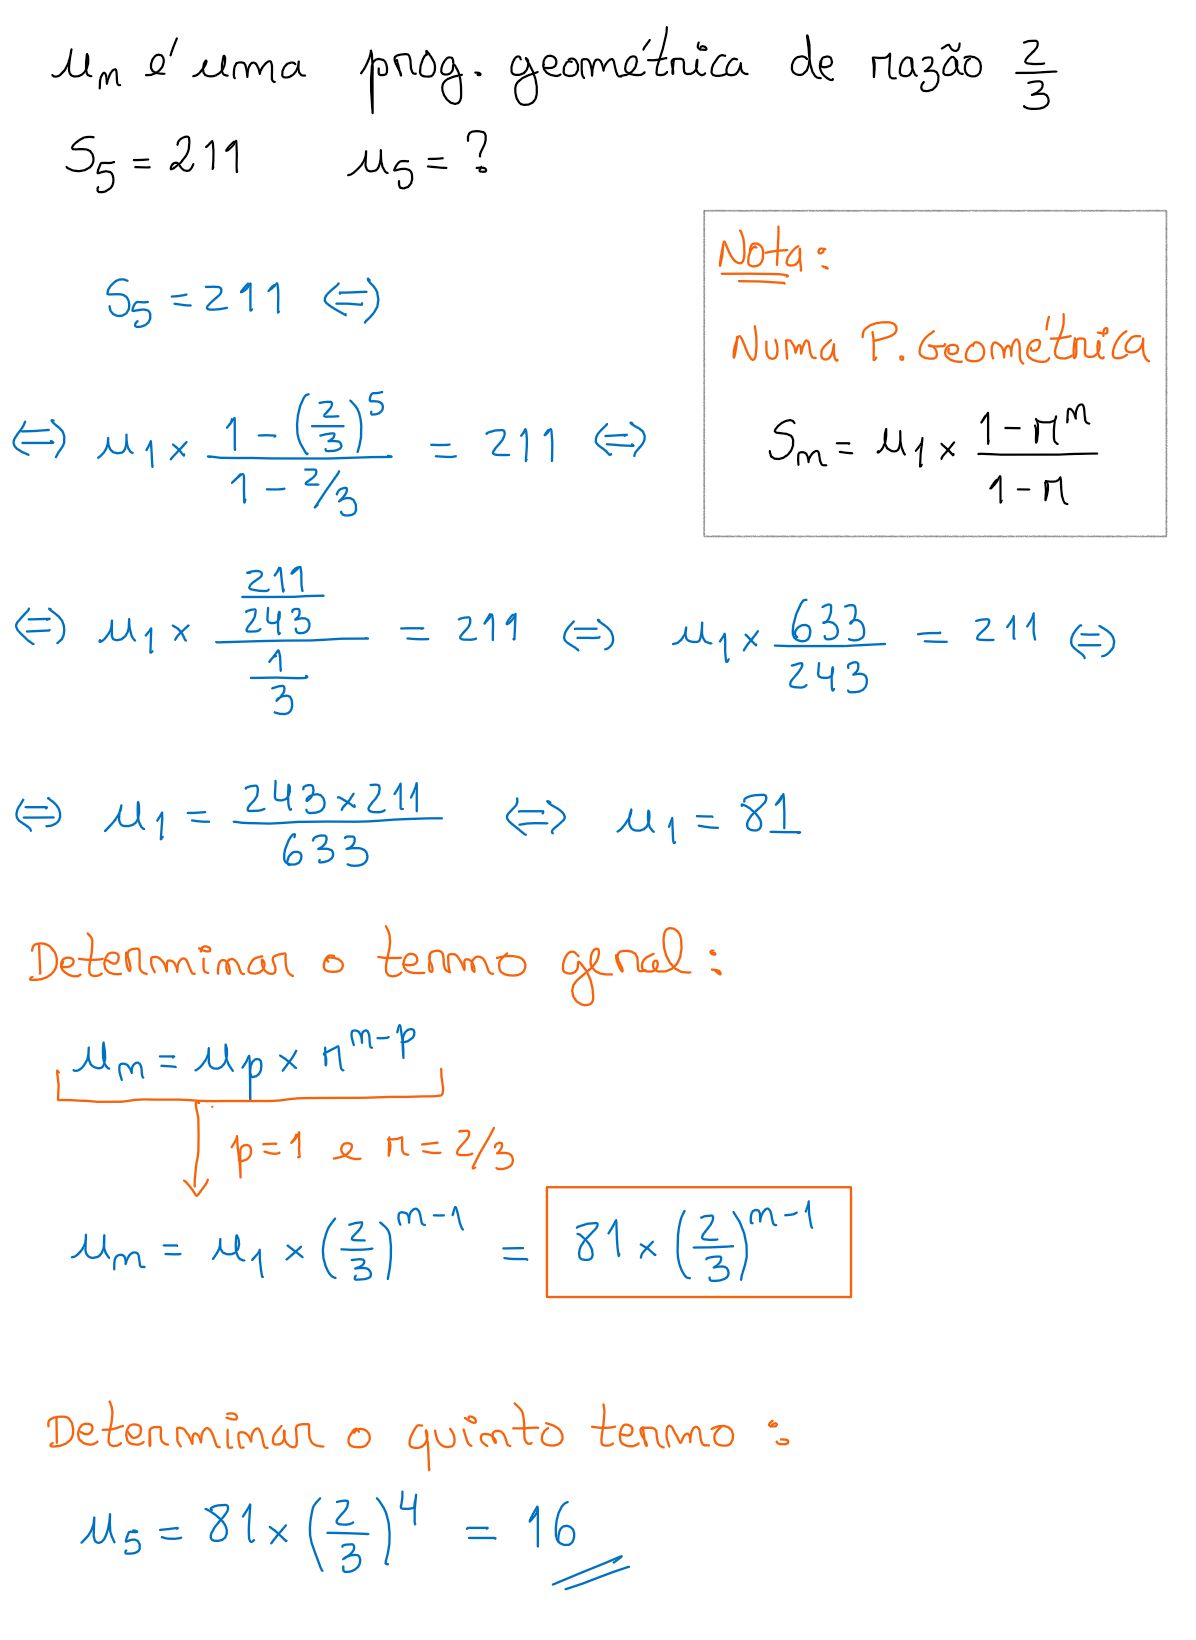 uₙ é uma prog. geométrica de razão 2/3
S₅ = 211 u₅ = ?
Nota:
Numa P. Geométrica
Sₙ = u₁ × (1 - rⁿ)/(1 - r)
S₅ = 211 ⇔
⇔ u₁ × (1 - (2/3)⁵)/(1 - 2/3) = 211 ⇔
⇔ u₁ × (211/243)/(1/3) = 211 ⇔ u₁ × 633/243 = 211 ⇔
⇔ u₁ = (243 × 211)/633 ⇔ u₁ = 81
Determinar o termo geral:
uₙ = uₚ × rⁿ⁻ᵖ
p = 1 e r = 2/3
uₙ = u₁ × (2/3)ⁿ⁻¹ = 81 × (2/3)ⁿ⁻¹
Determinar o quinto termo:
u₅ = 81 × (2/3)⁴ = 16